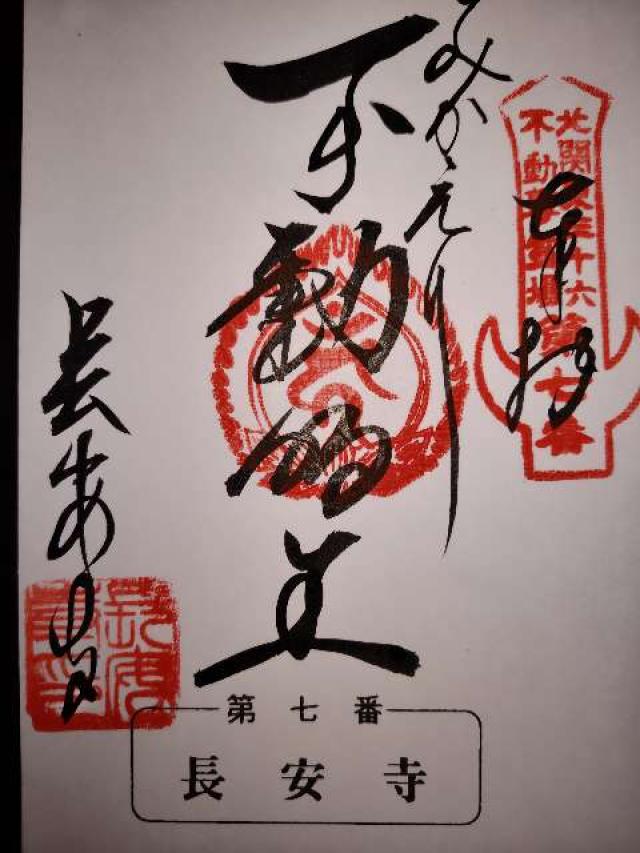 奉拝
北関東三十六
不動尊霊場
第七番
みかえり
不動明王
長安寺
第七番
長安寺